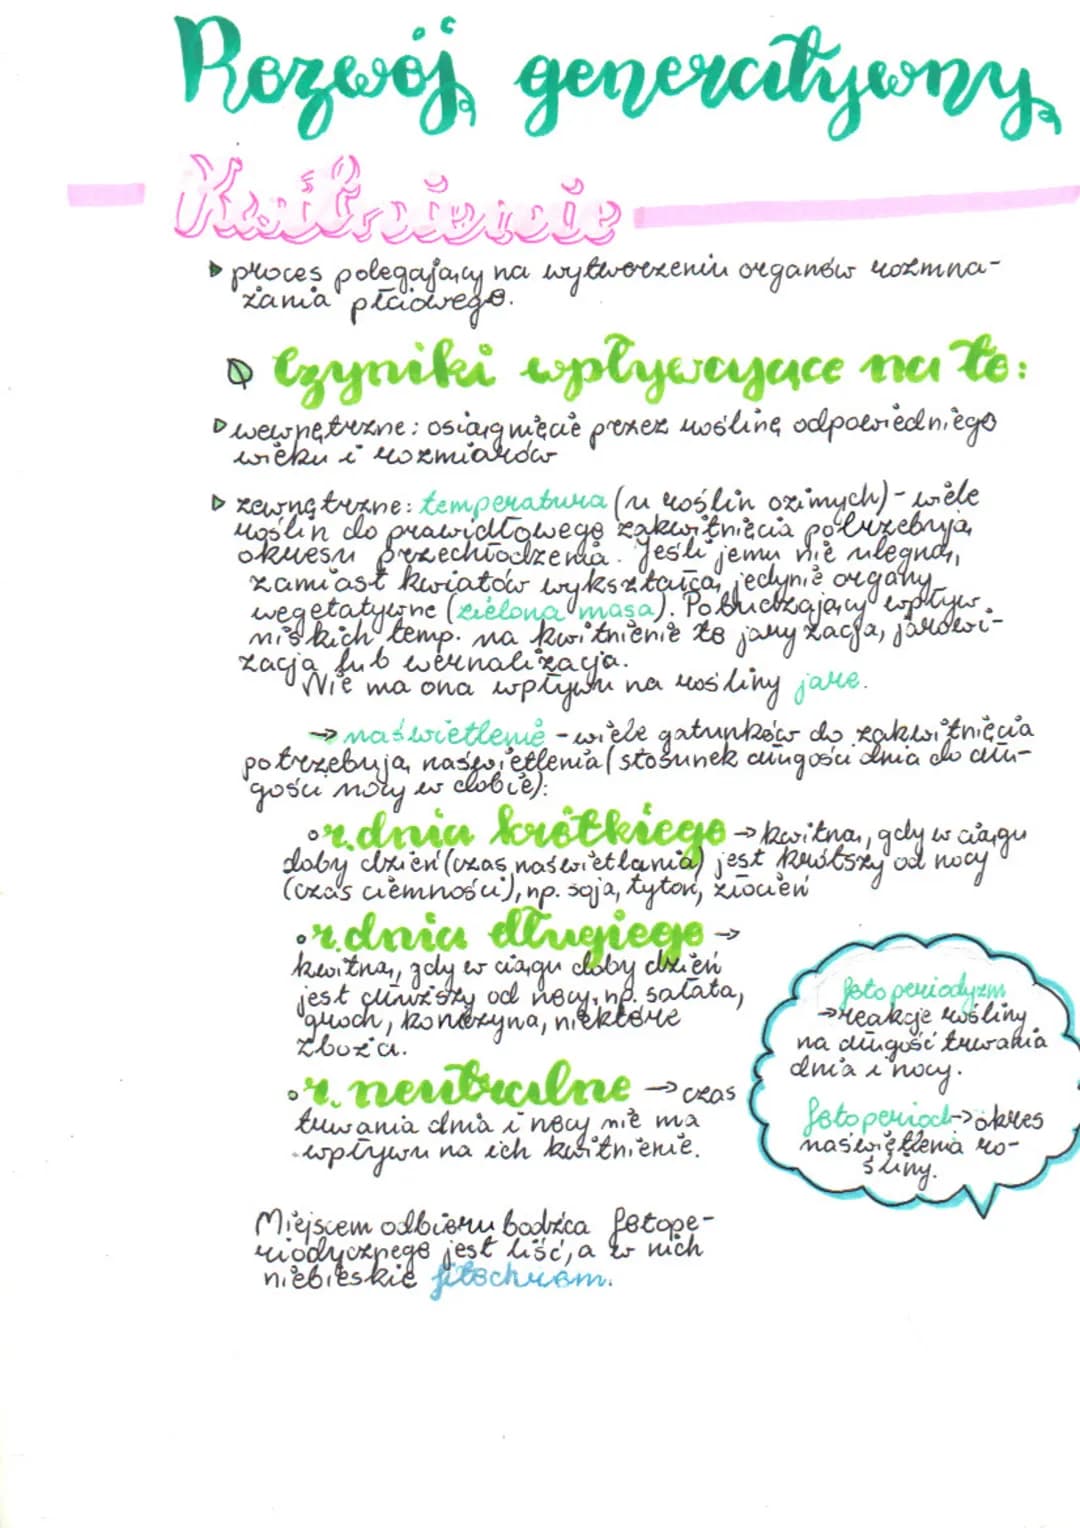 Rozwój generatywny
Kwitnienie
proces polegający na wytworzeniu organów rozmna-
żania płciowego.
Czyniki wpływające na to:
wewnętrzne: osiągnięcie przez roślinę odpowiedniego
wieku i rozmiarów
zewnętrzne: temperatura (u roślin ozimych) - wiele
roślin do prawidłowego zakwitnięcia potrzebują
okresu przechłodzenia. Jeśli jemu nie ulegną,
zamiast kwiatów wykształcą jedynie organy
wegetatywne (zielona masa). Pobudzający wpływ
niskich temp. na kwitnienie to jaryzacja, jarowi-
zacja lub wernalizacja.
Nie ma ona wpływu na rośliny jare.
→ naświetlenie - wiele gatunków do zakwitnięcia
potrzebują naświetlenia (stosunek długości dnia do dłu-
gości nocy w dobie):
• r. dnia krótkiego → kwitną, gdy w ciągu
doby dzień (czas naświetlania) jest krótszy od nocy
(czas ciemności), np. soja, tytoń, złocień
• r. dnia długiego →
kwitną, gdy w ciągu doby dzień
jest dłuższy od nocy, np. sałata,
groch, koniczyna, niektóre
zboża.
• r. neutralne → czas
trwania dnia i nocy nie ma
wpływu na ich kwitnienie.
fotoperiodyzm
→ reakcje rośliny
na długość trwania
dnia i nocy.
fotoperiod → okres
naświetlenia ro-
śliny.
Miejscem odbioru bodźca fotope-
riodycznego jest liść, a w nich
niebieskie fitochrom.